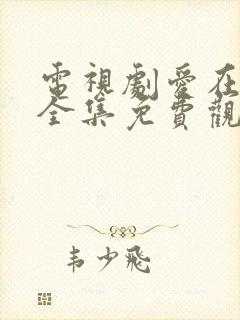 電視劇愛在
全集免費觀
韦少飛